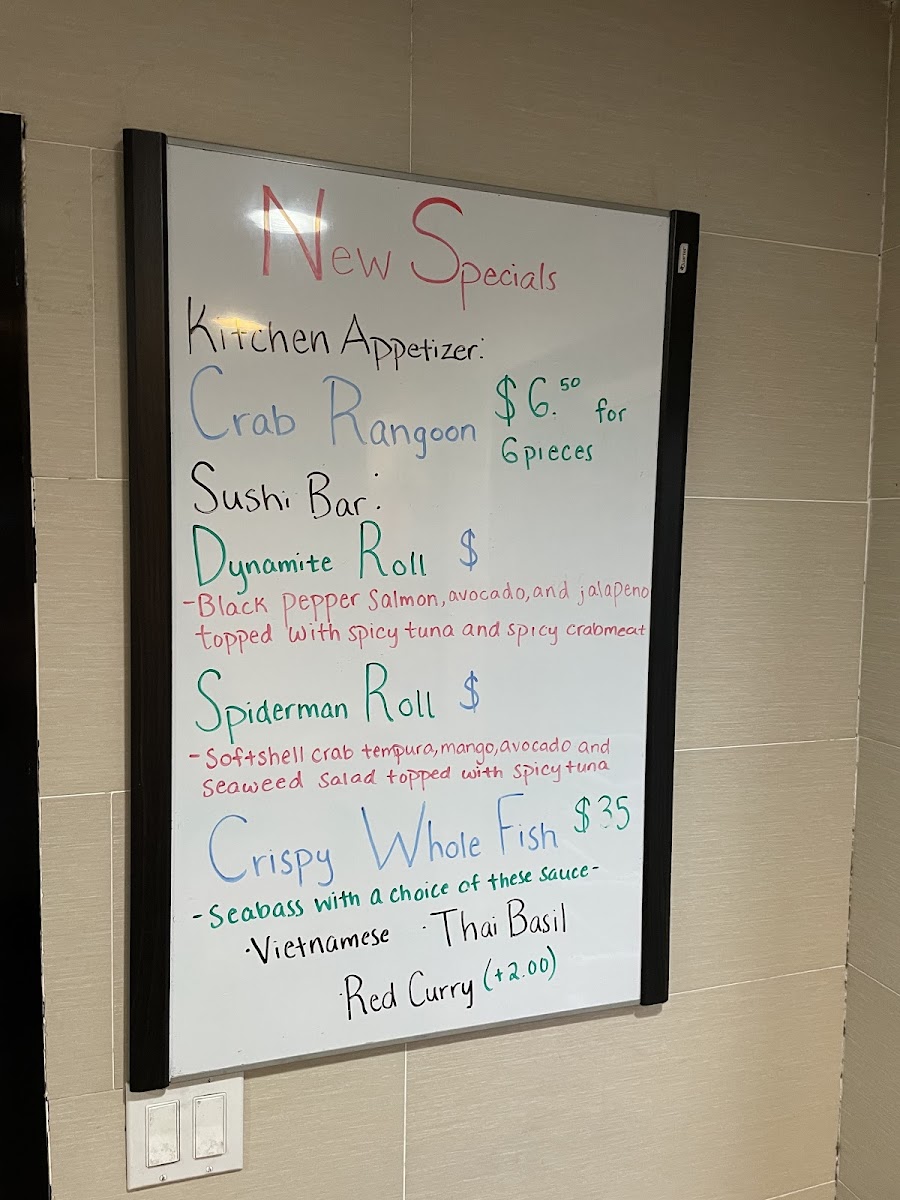 New Specials
Kitchen Appetizer:
Crab Rangoon $6.50 for
6 pieces
Sushi Bar:
Dynamite Roll $
-Black pepper Salmon, avocado, and jalapeno
topped with spicy tuna and spicy crabmeat
Spiderman Roll $
-Softshell crab tempura, mango, avocado and
seaweed salad topped with spicy tuna
Crispy Whole Fish $35
-Seabass with a choice of these sauce-
·Vietnamese ·Thai Basil
·Red Curry (+2.00)